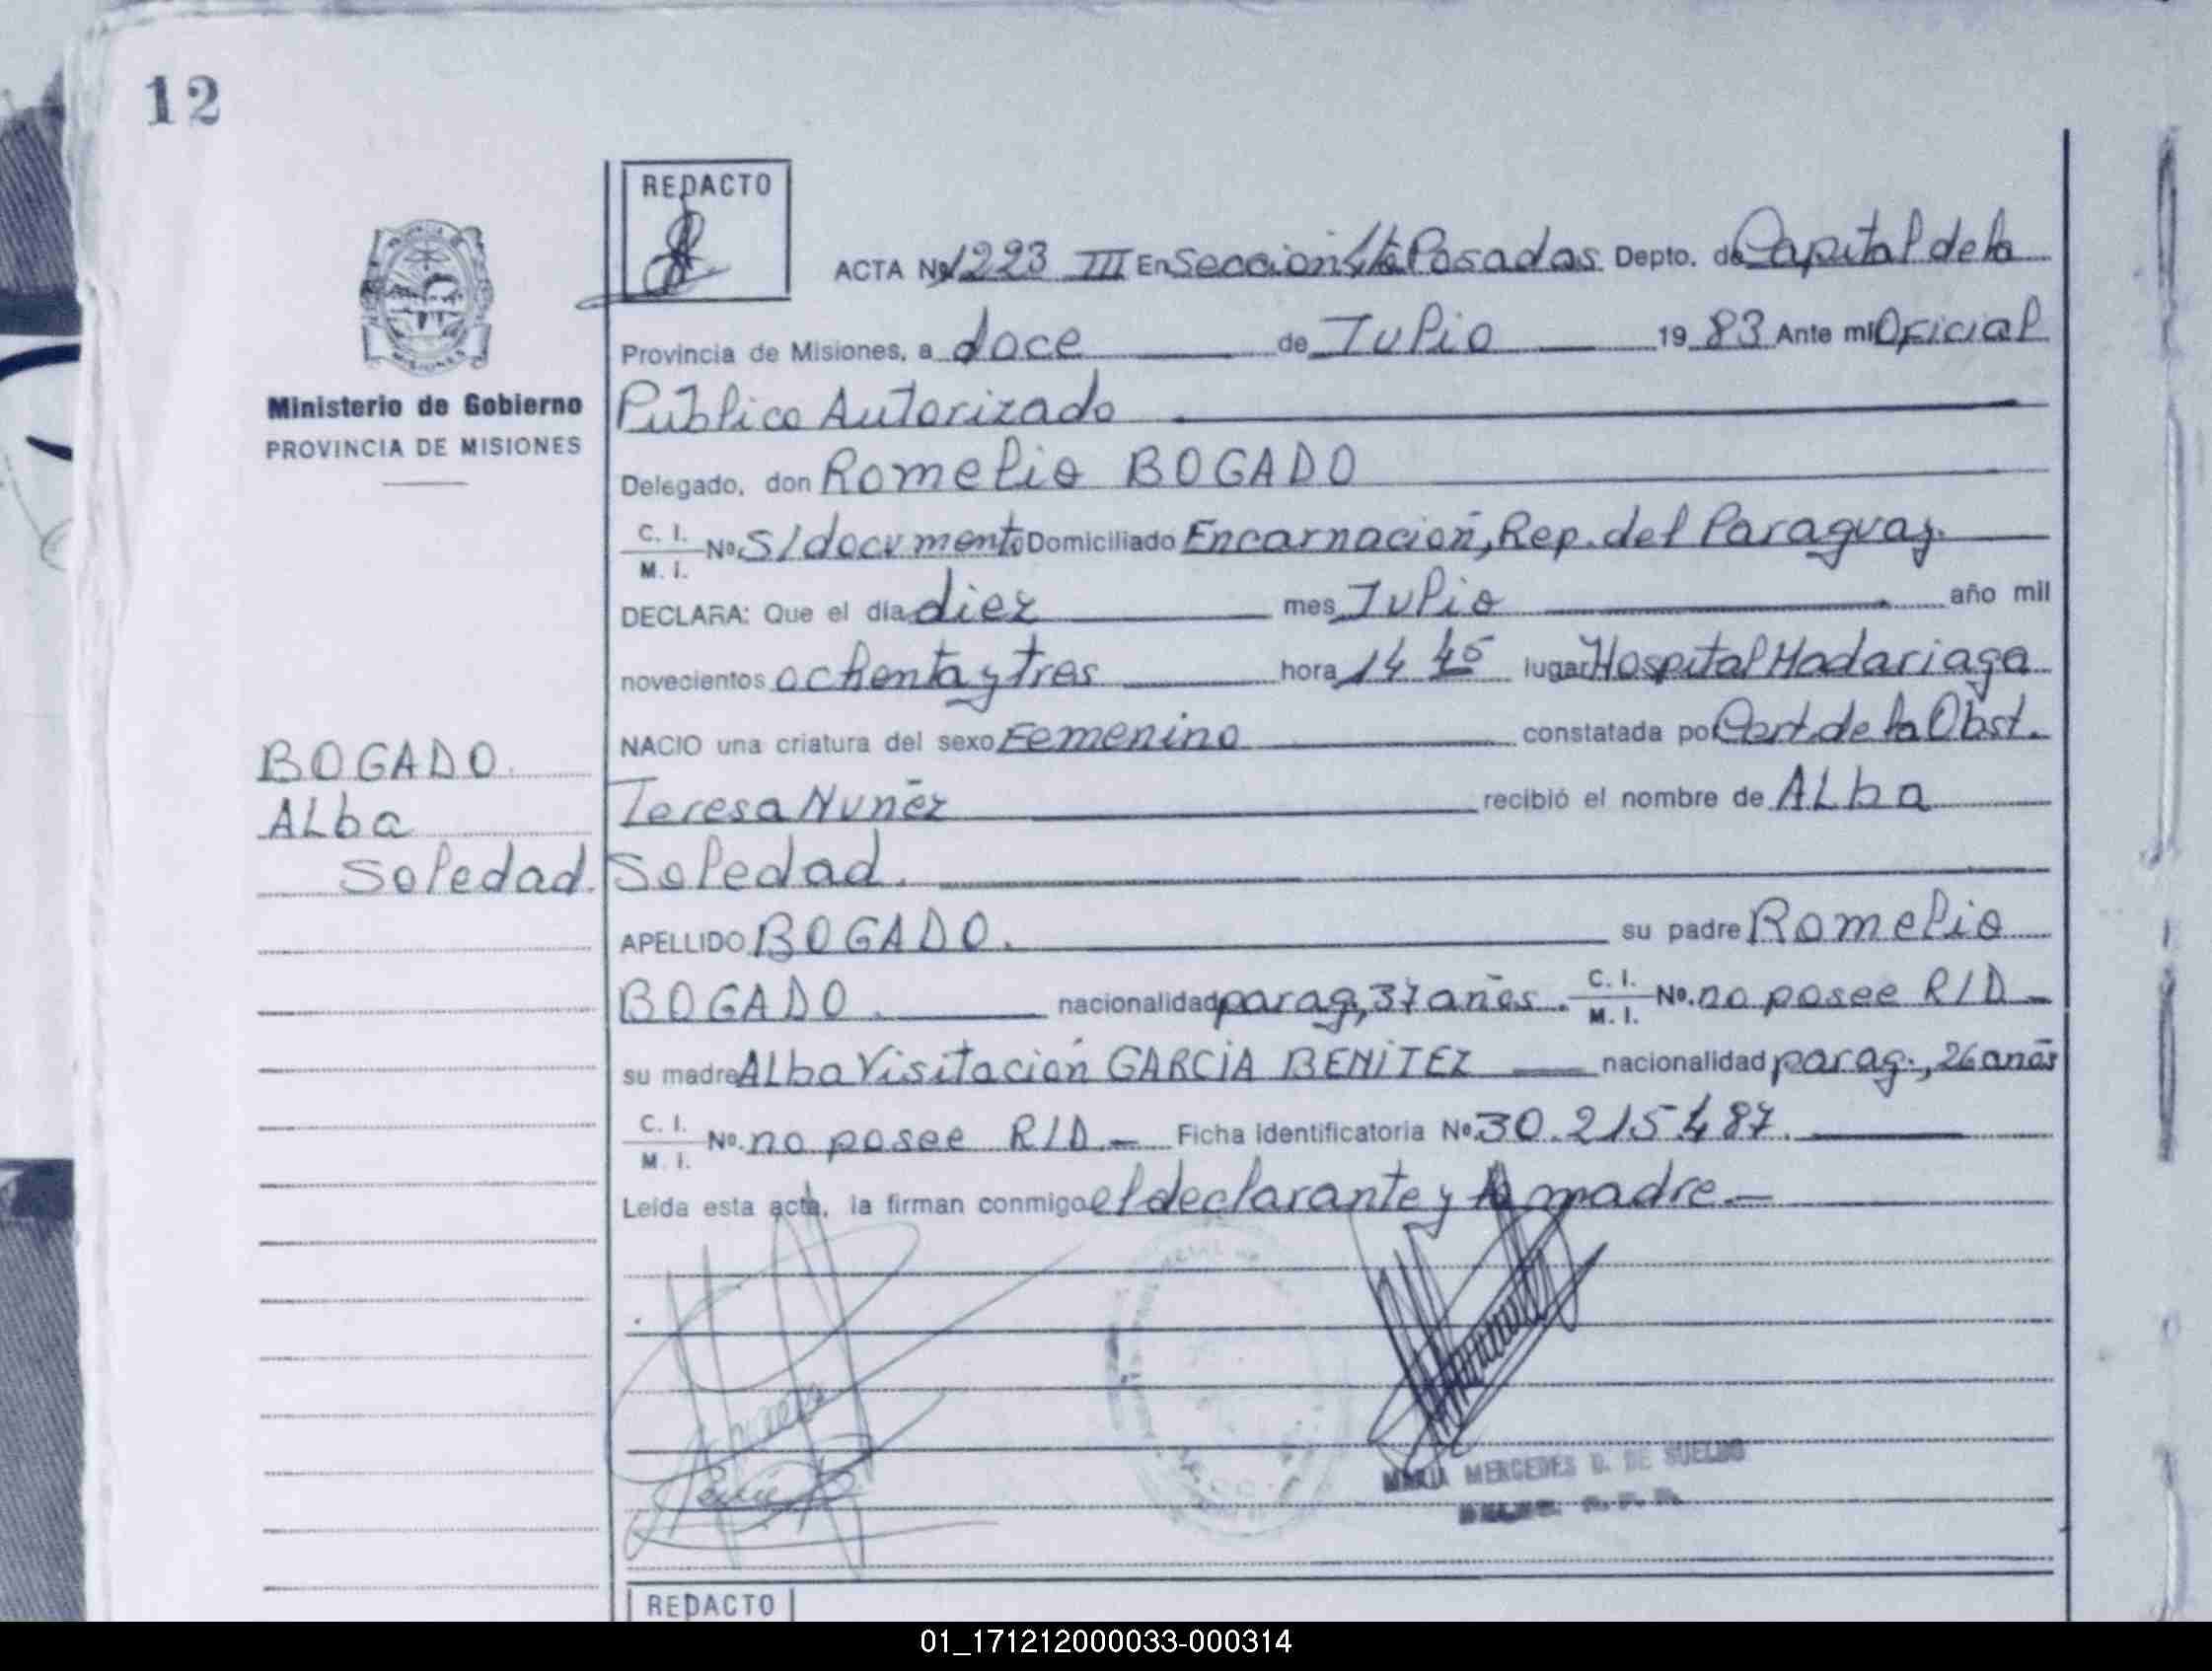 12
REDACTO
ACTA Nº 1223 III En Sección 4ta Posadas Depto. de Capital de la
Provincia de Misiones, a doce de Julio 19 83 Ante mi Oficial
Ministerio de Gobierno
PROVINCIA DE MISIONES
Público Autorizado
Delegado, don Romelio BOGADO
C. I. M. I. Nº S/documento Domiciliado Encarnación, Rep. del Paraguay.
DECLARA: Que el día diez mes Julio año mil
novecientos ochenta y tres hora 14 45 lugar Hospital Madariaga
NACIO una criatura del sexo Femenino constatada por Cert. de la Obst.
BOGADO.
Alba
Soledad.
Teresa Nuñez recibió el nombre de Alba
Soledad.
APELLIDO BOGADO. su padre Romelio
BOGADO. nacionalidad parag, 37 años. C. I. M. I. Nº. no posee R/D
su madre Alba Visitación GARCIA BENITEZ nacionalidad parag., 26 años
C. I. M. I. Nº. no posee R/D. Ficha Identificatoria Nº 30.215.487.
Leída esta acta, la firman conmigo el declarante y la madre.
MARIA MERCEDES D. DE SUELDO
REDACTO
01_171212000033-000314